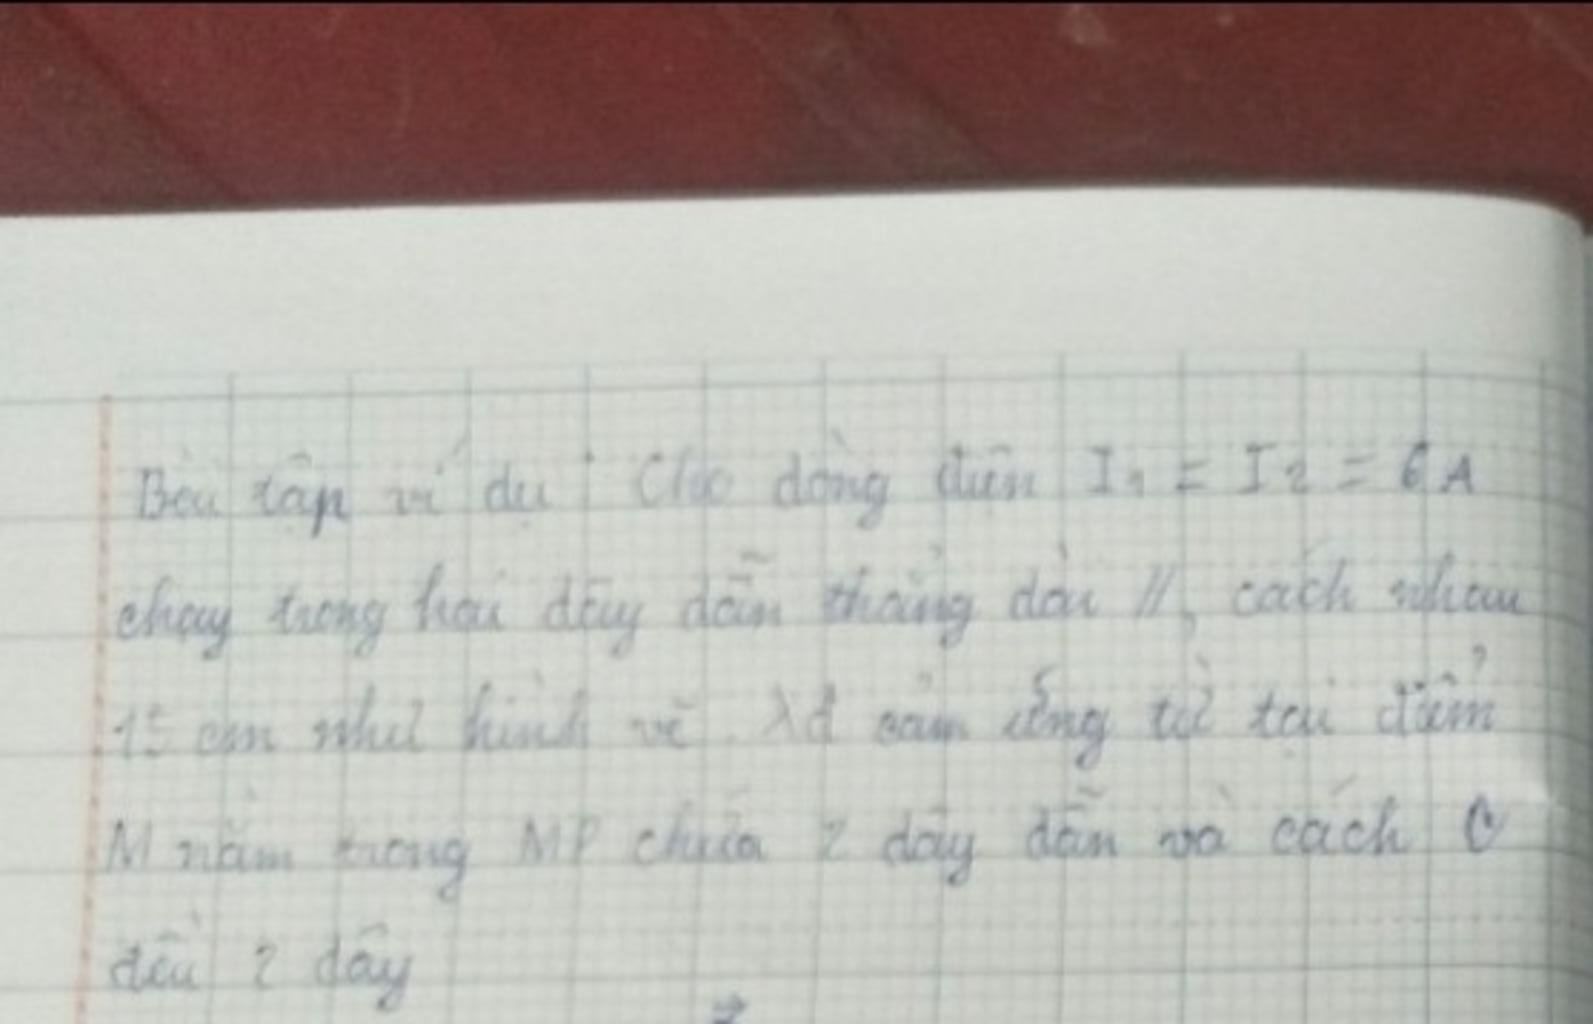 Bài tập ví dụ : Cho dòng điện I₁ = I₂ = 6A
chạy trong hai dây dẫn thẳng dài //, cách nhau
15 cm như hình vẽ. Xđ cảm ứng từ tại điểm
M nằm trong MP chứa 2 dây dẫn và cách
đều 2 dây